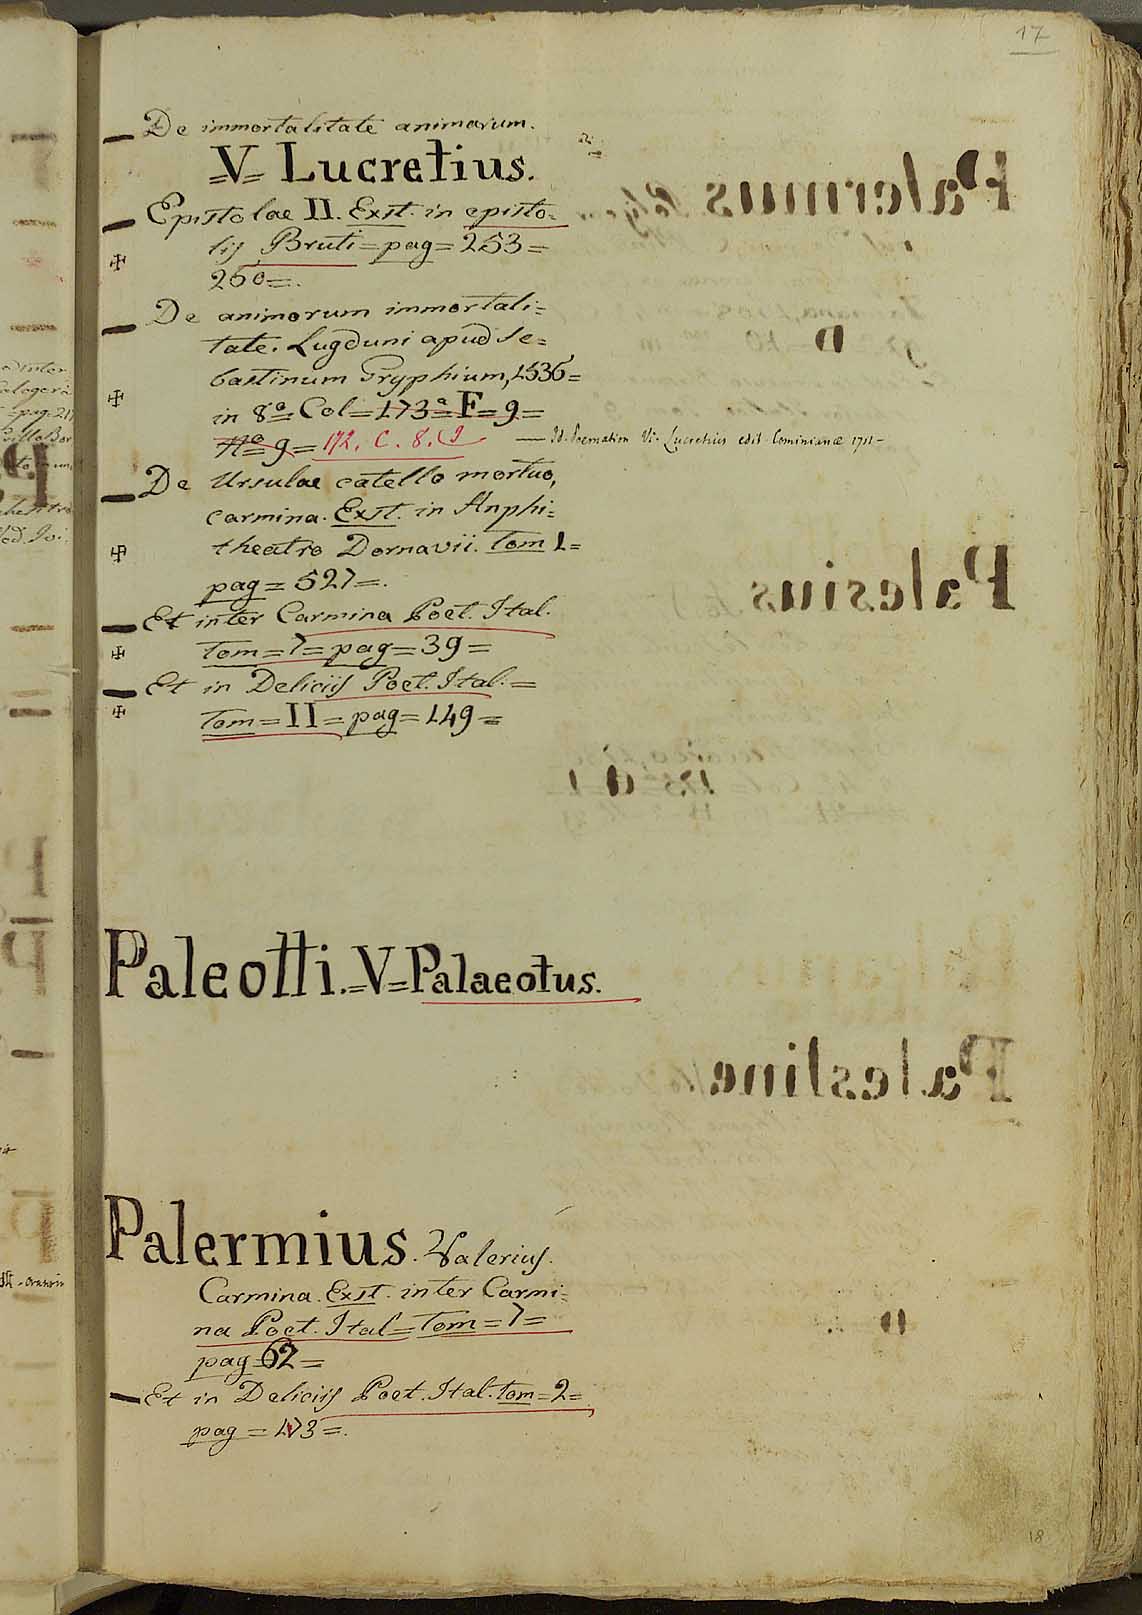 17
De immortalitate animarum.
=V= Lucretius.
Epistolae II. Exst. in episto=
lis Bruti=pag=253=
260=.
De animorum immortali=
tate. Lugduni apud Se=
bastinum Gryphium, 1536=
in 8º=Col=173ª=F=9=
Nº=9= 172. C. 8.
— Id. Poemation Vi. Lucretius edit. Cominianae 1721—
De Ursulae catello mortuo,
carmina. Exst. in Anphi=
theatro Dornavii. Tom 1=
pag=527=.
Et inter Carmina Poet. Ital.
Tom=7=pag=39=
Et in Deliciis Poet. Ital.=
Tom=II=pag=149=
Paleotti.=V=Palaeotus.
Palermius. Valerius.
Carmina. Exst. inter Carmi=
na Poet. Ital=Tom=7=
pag 62=
Et in Deliciis Poet. Ital. tom=2=
pag=173=.
18